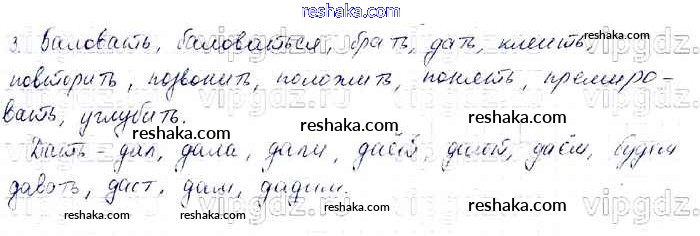 reshaka.com
3. Баловать, баловаться, брать, дать, клеить,
повторить, позвонить, положить, понять, премиро-
вать, углубить.
reshaka.com reshaka.com
Дать – дал, дала, дали, даёт, дают, даём, будем
давать, даст, дам, дадим.
reshaka.com reshaka.com reshaka.com